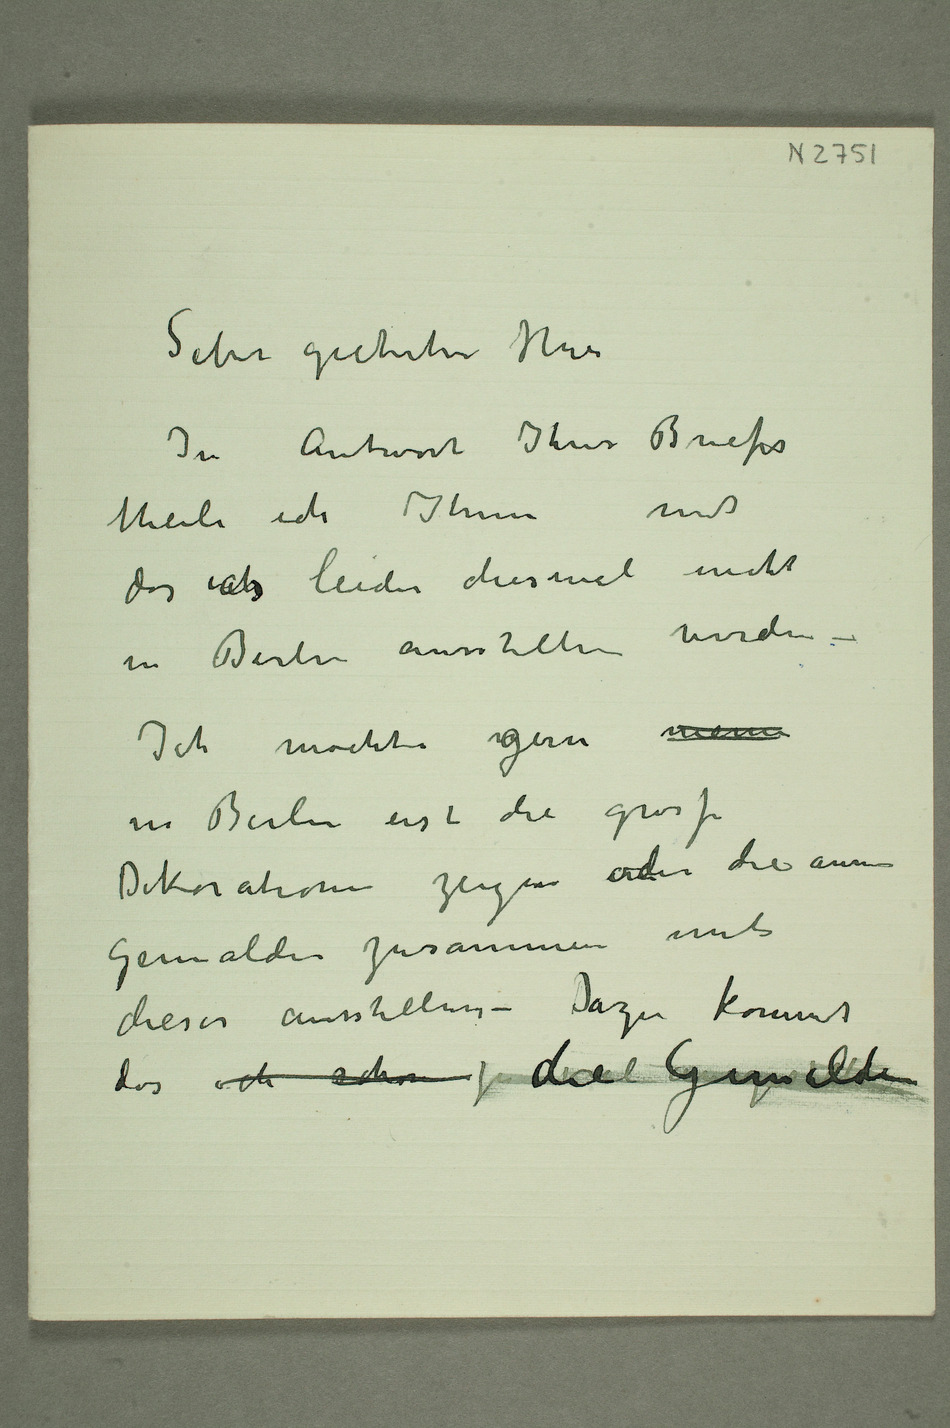 N 2751
Sehr geehrter Herr
In Antwort Ihres Briefes
theile ich Ihnen mit
das ich leider diesmal nicht
in Berlin ausstellen werden –
Ich mochte gern meine
in Berlin erst die grosse
Dekorationen zeigen oder die
Gemälden zusammen mit
dieser ausstellen – Dazu kommt
das ich schon die Gemälden